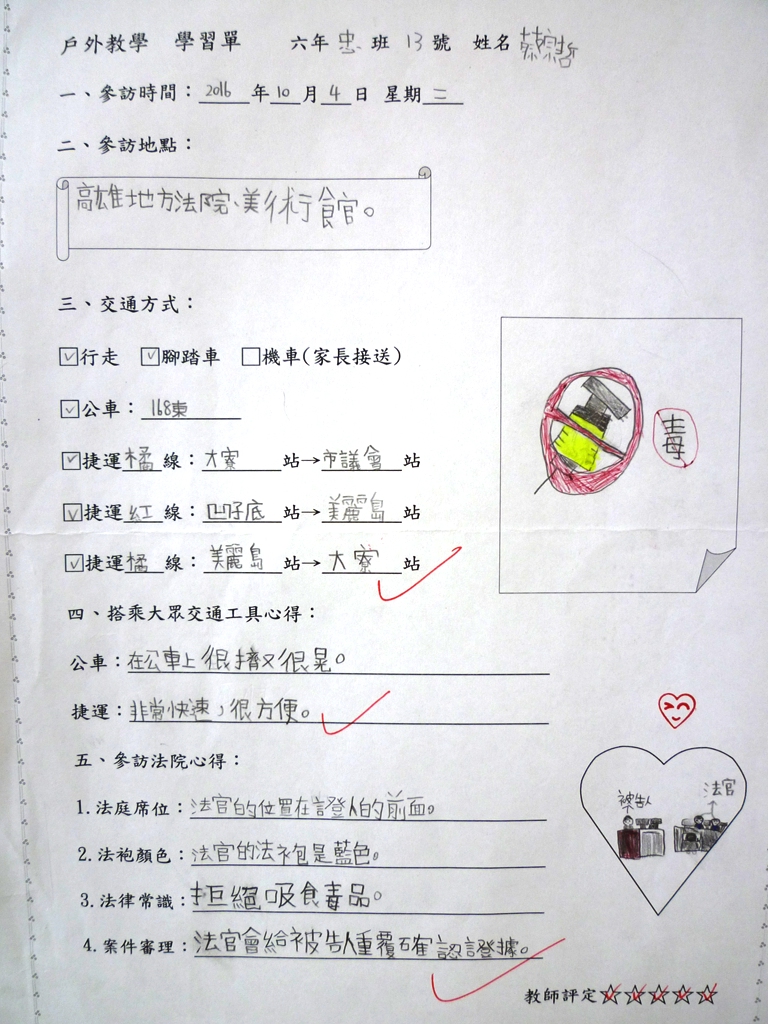 戶外教學 學習單 六年忠班 13號 姓名蔡宗哲
一、參訪時間：2016年10月4日 星期二
二、參訪地點：
高雄地方法院、美術行館。
三、交通方式：
☑行走 ☑腳踏車 □機車(家長接送)
☑公車：168東
☑捷運橘線：大寮站→市議會站
毒
☑捷運紅線：凹仔底站→美麗島站
☑捷運橘線：美麗島站→大寮站
四、搭乘大眾交通工具心得：
公車：在公車上很擠又很晃。
捷運：非常快速，很方便。
五、參訪法院心得：
1.法庭席位：法官的位置在證人的前面。
被告人 法官
2.法袍顏色：法官的法袍是藍色。
3.法律常識：拒絕吸食毒品。
4.案件審理：法官會給被告人重覆確認證據。
教師評定☆☆☆☆☆